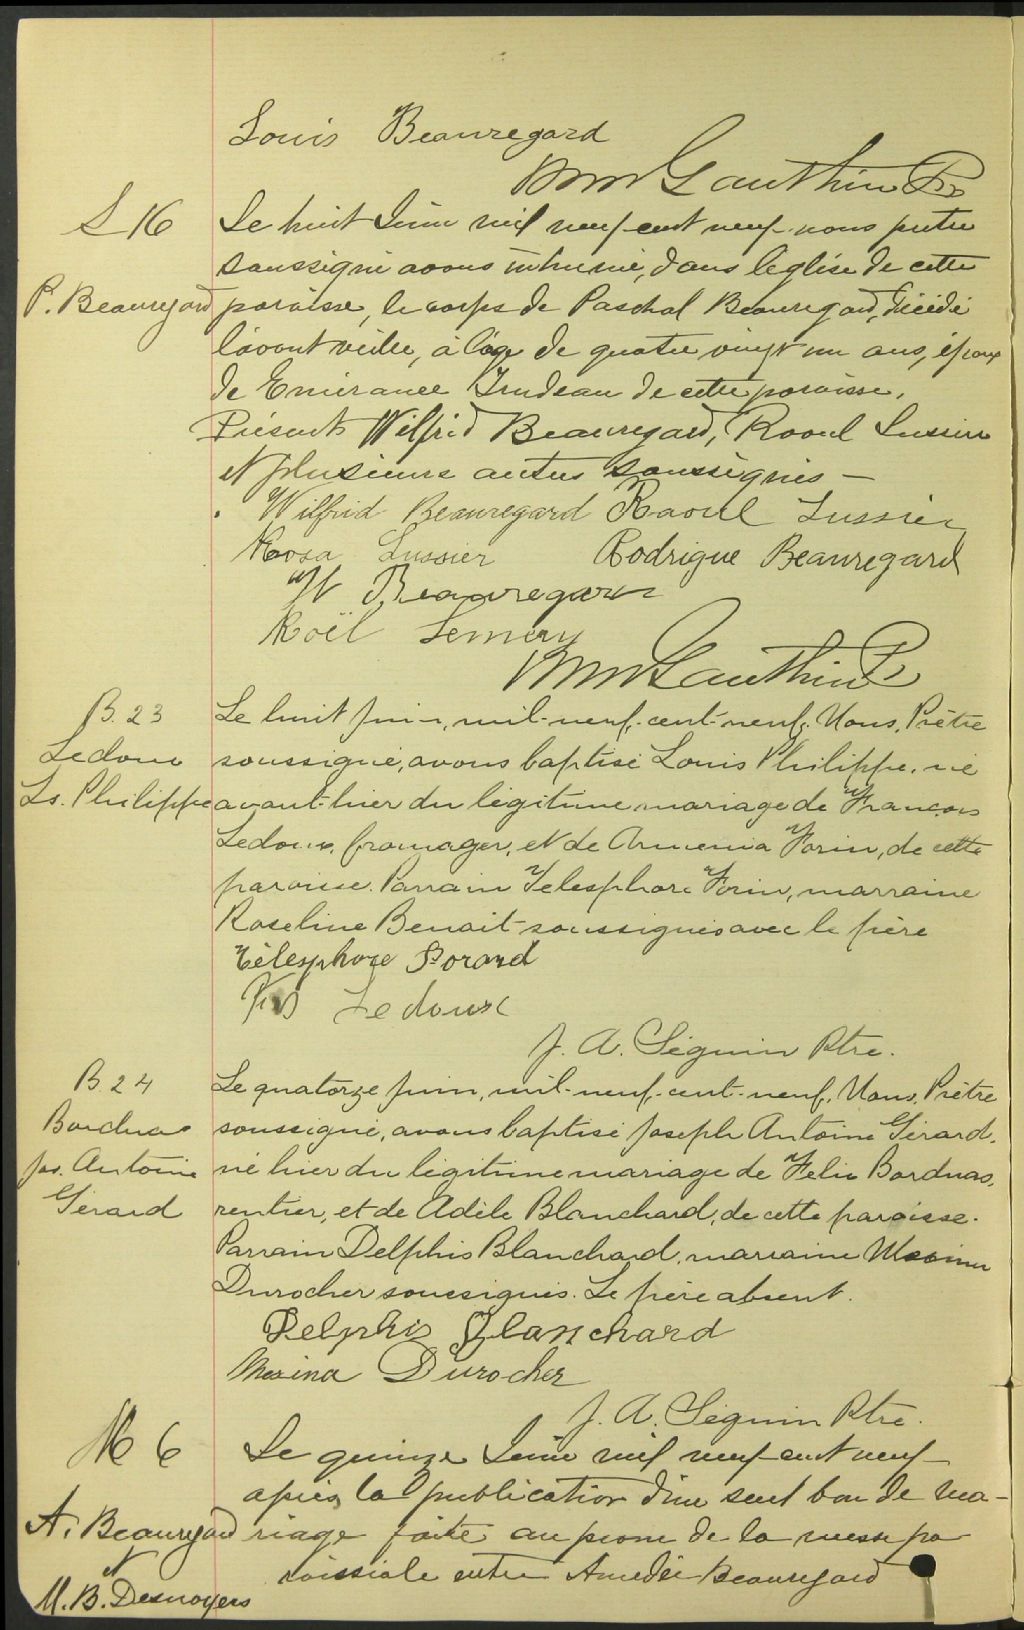 Louis Beauregard
Wm Gauthier Ptr
S 16
Le huit Juin mil neuf cent neuf nous prêtre
soussigné avons inhumé, dans l'église de cette
P. Beauregard
paroisse, le corps de Paschal Beauregard, décédé
l'avant veille, à l'age de quatre vingt un ans, époux
de Emérance Trudeau de cette paroisse.
Présents Wilfrid Beauregard, Raoul Lussier
et plusieurs autres soussignés —
Wilfrid Beauregard Raoul Lussier
Rosa Lussier Rodrigue Beauregard
W Beauregard
Noël Lemery
Wm Gauthier P
B. 23
Le huit Juin, mil-neuf-cent-neuf, Nous, Prêtre
Ledoux
soussigné, avons baptisé Louis Philippe, né
Ls. Philippe
avant-hier du légitime mariage de François
Ledoux, fromager, et de Armenia Forin, de cette
paroisse. Parrain Télesphore Forin, marraine
Roseline Benoit soussignés avec le père
Télesphore
Frs Ledoux
J. A. Séguin Ptre.
B. 24
Le quatorze Juin, mil-neuf-cent-neuf, Nous, Prêtre
Borduas
soussigné, avons baptisé Joseph Antoine Gérard,
Jos. Antoine
né hier du légitime mariage de Felix Borduas,
Gérard
rentier, et de Adèle Blanchard, de cette paroisse.
Parrain Delphis Blanchard, marraine
Durocher soussignés. Le père absent.
Delphis Blanchard
Mexina Durocher
J. A. Séguin Ptre.
M 6
Le quinze Juin mil neuf cent neuf
après la publication d'un seul ban de ma-
A. Beauregard
riage faite au prone de la messe pa
et
roissiale entre Amedée Beauregard
M. B. Desnoyers